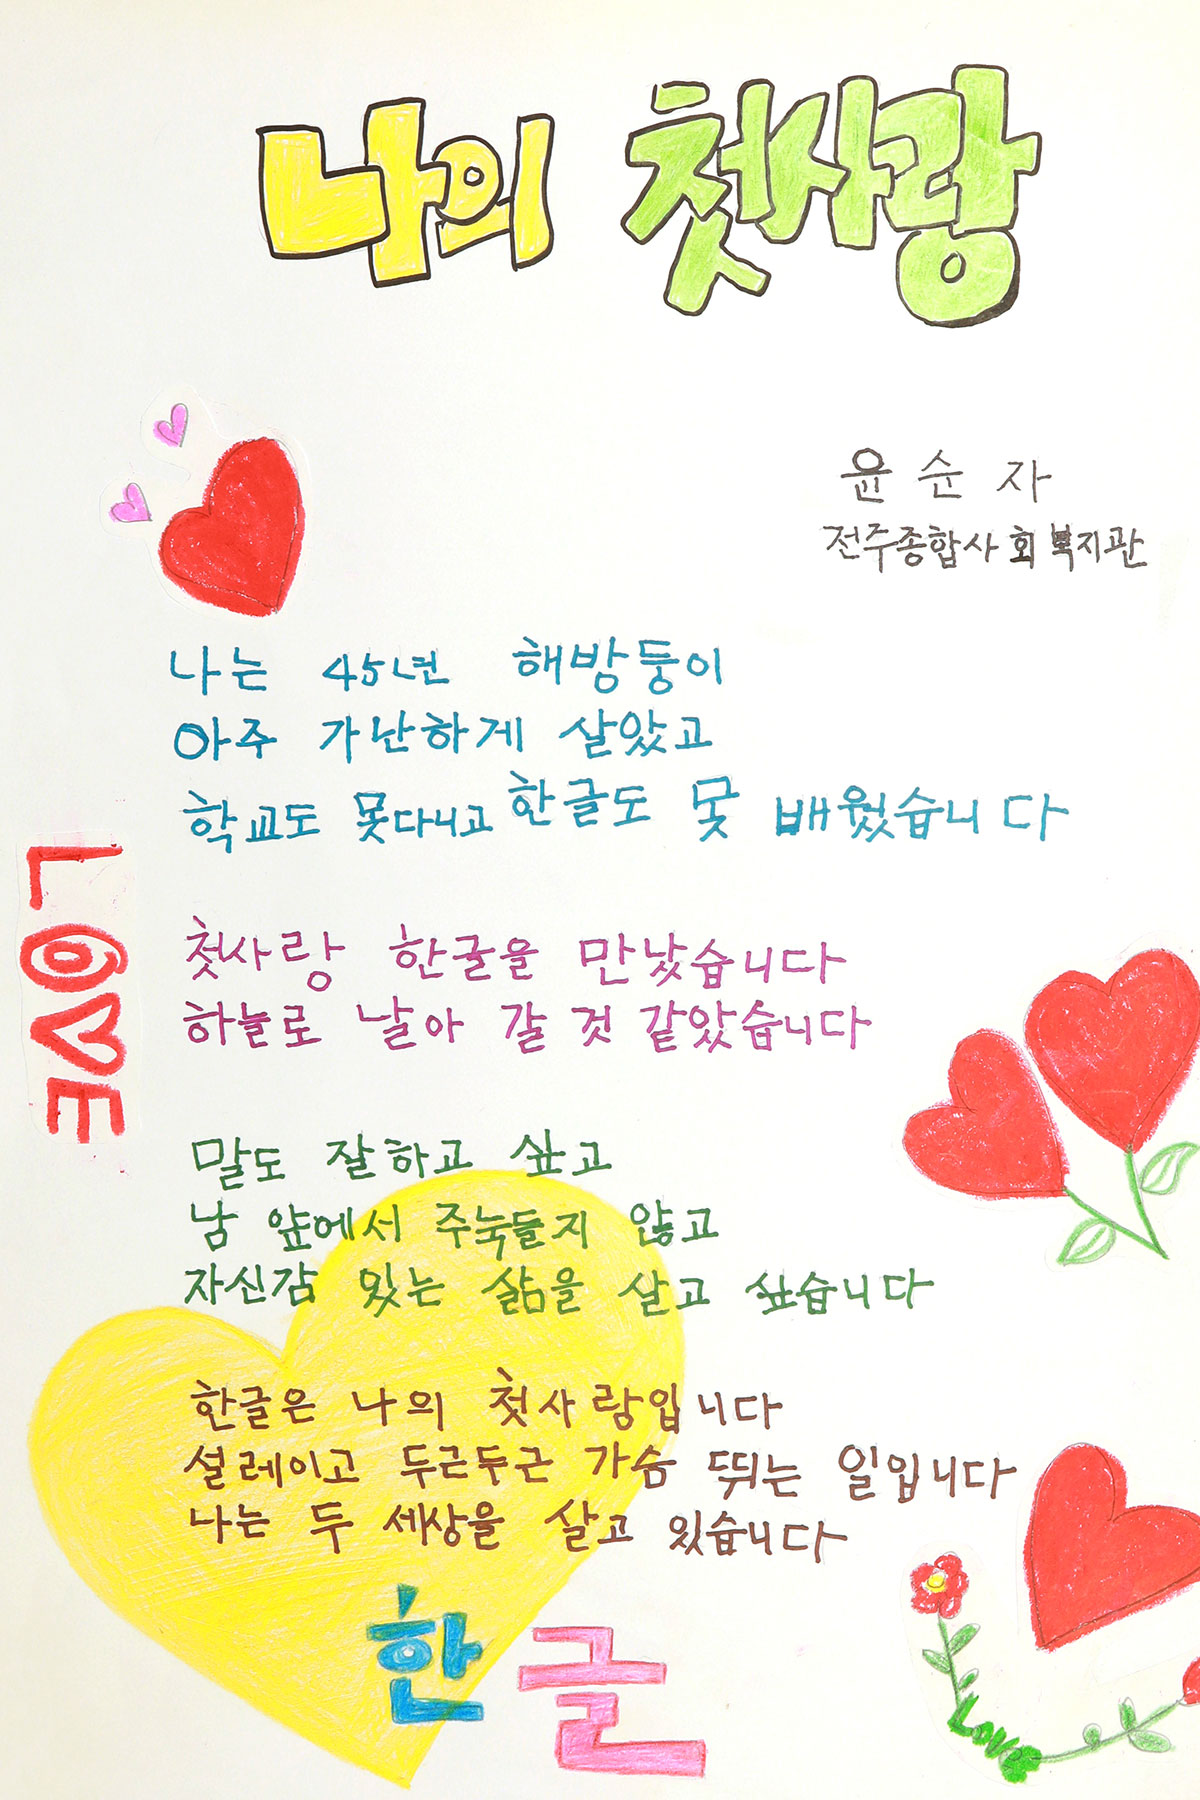 나의 첫사랑
윤순자
전주종합사회복지관
나는 45년 해방둥이
아주 가난하게 살았고
학교도 못다니고 한글도 못 배웠습니다
LOVE
첫사랑 한글을 만났습니다
하늘로 날아 갈 것 같았습니다
말도 잘하고 싶고
남 앞에서 주눅들지 않고
자신감 있는 삶을 살고 싶습니다
한글은 나의 첫사랑입니다
설레이고 두근두근 가슴 뛰는 일입니다
나는 두 세상을 살고 있습니다
한글
Love